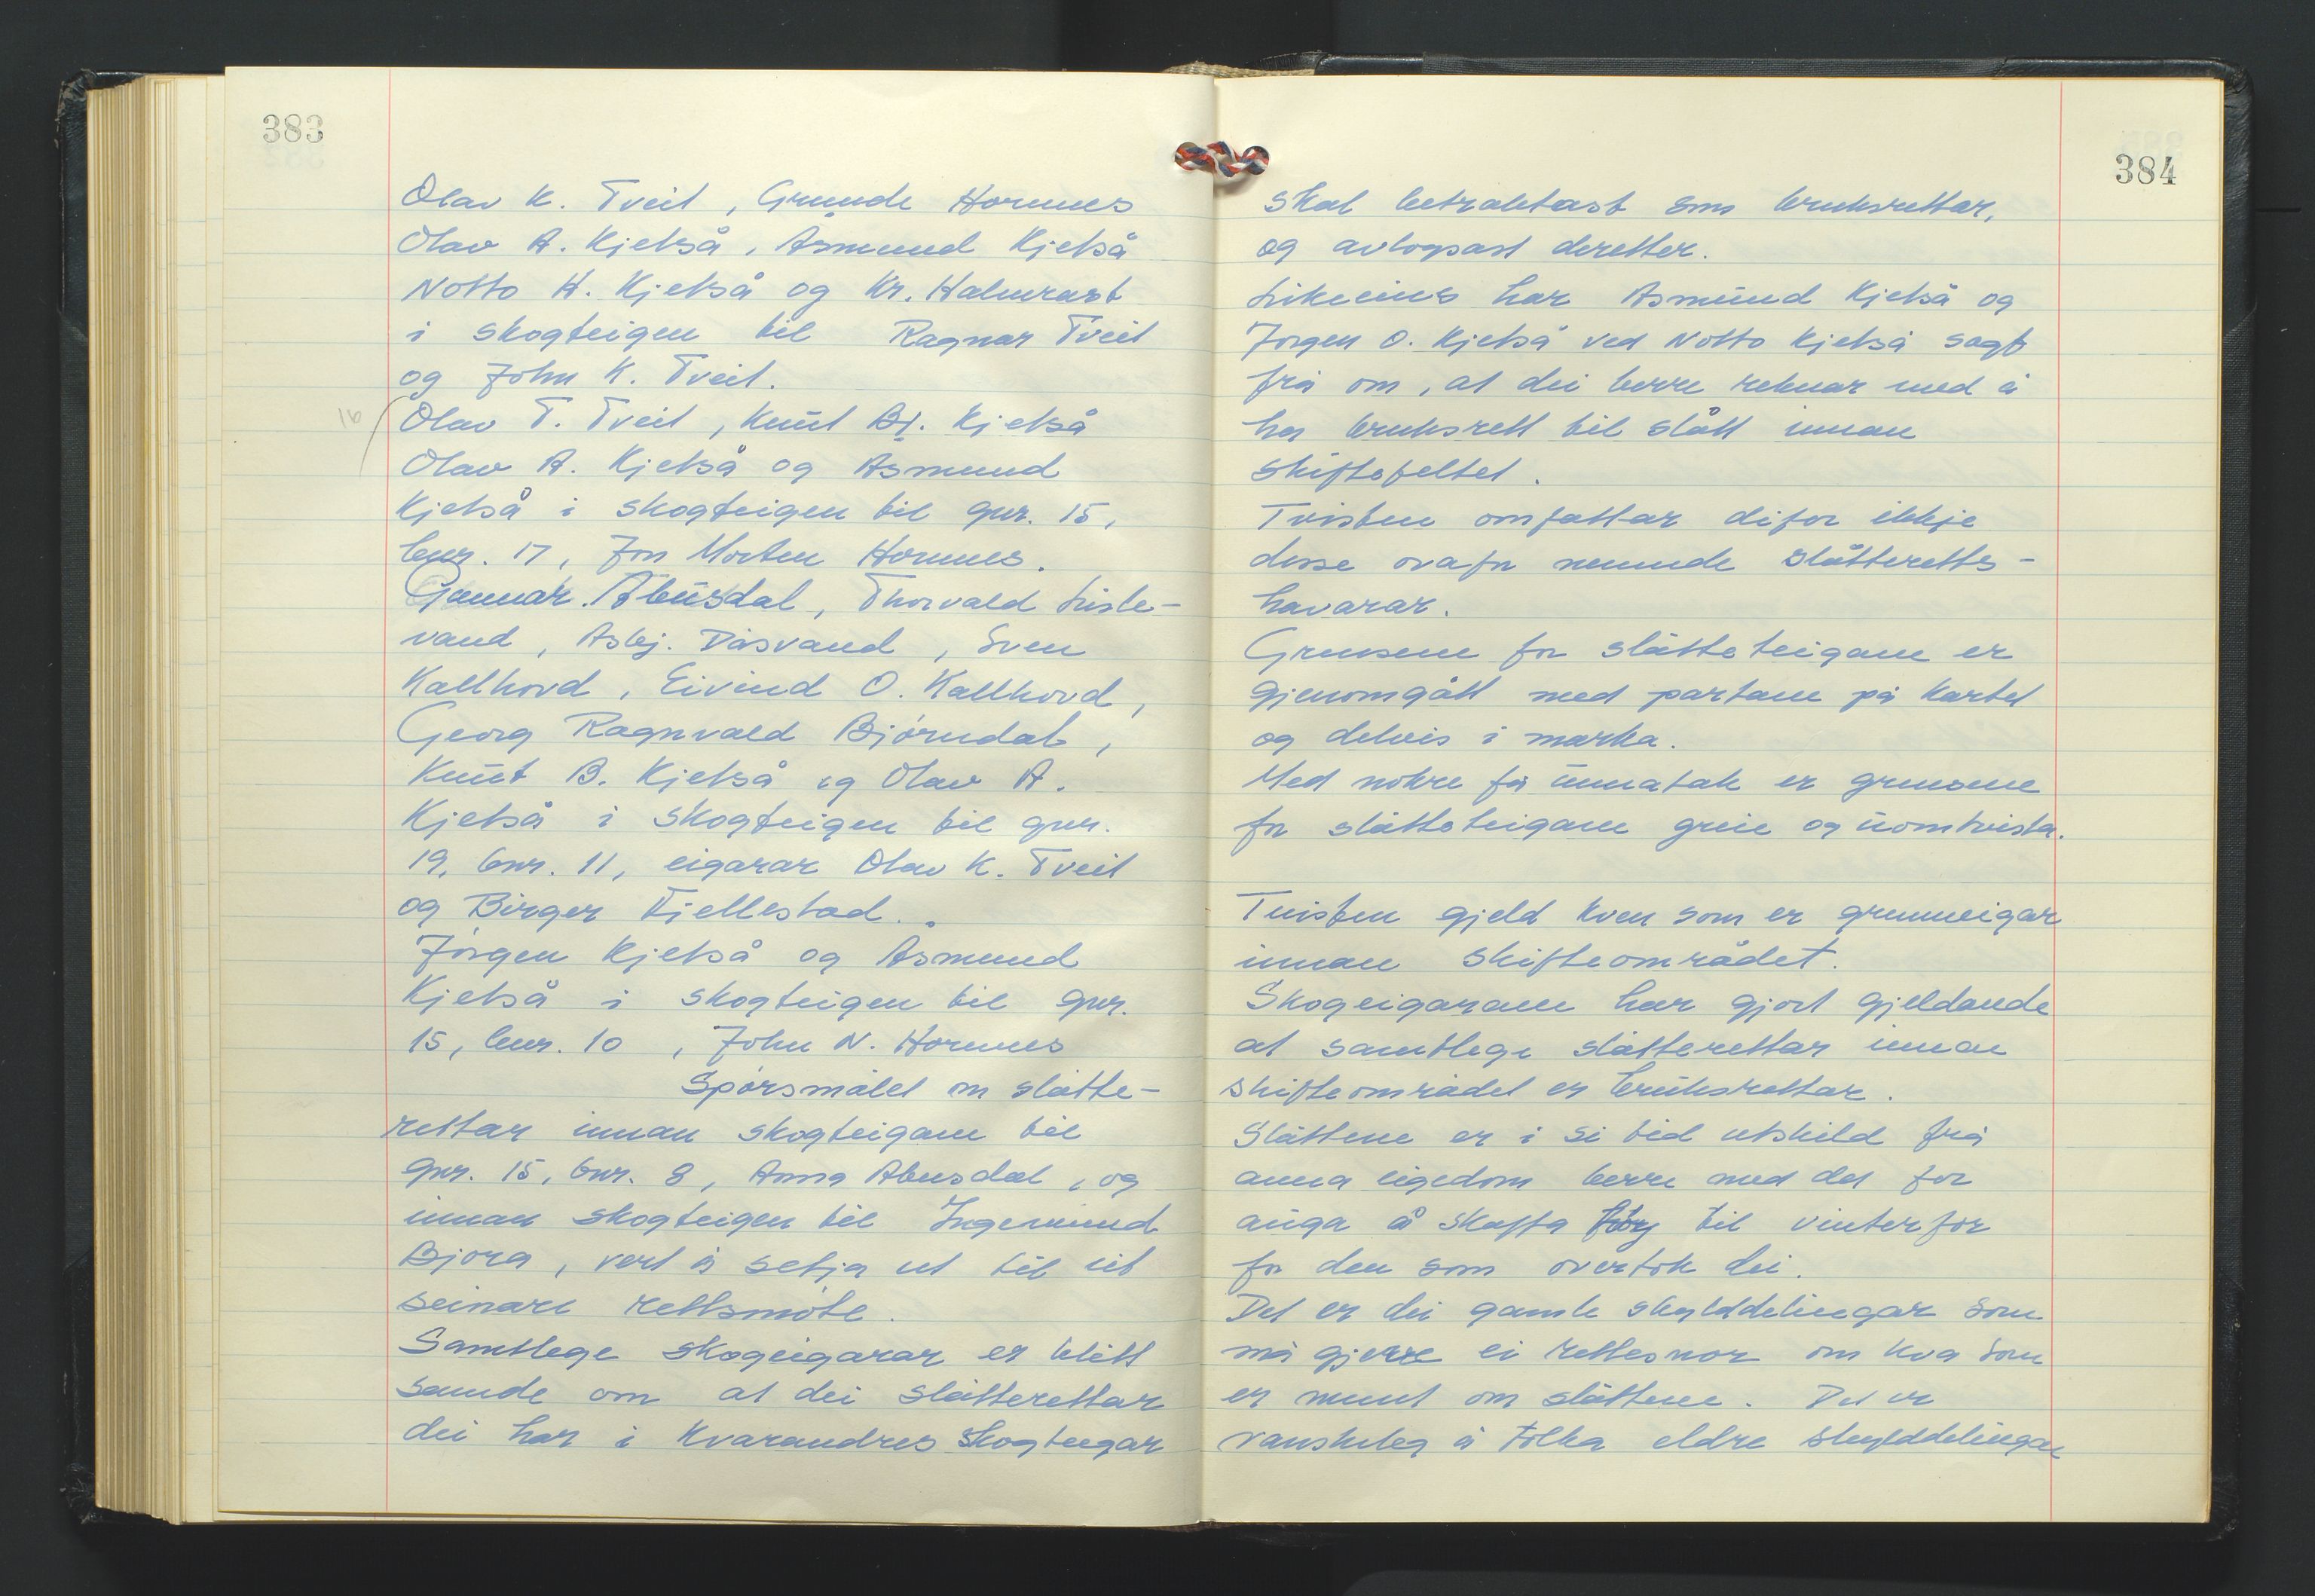 383
Olav K. Tveit, Grunde Hornnes
Olav A. Kjetså, Åsmund Kjetså
Notto H. Kjetså og Kr. Halvrast
i skogteigen til Ragnar Tveit
og John K. Tveit.
16
Olav T. Tveit, Knut B. Kjetså
Olav A. Kjetså og Asmund
Kjetså i skogteigen til gnr. 15,
bnr. 17, Jon Morten Hornnes.
Gunnar Abusdal, Thorvald Liste-
vand, Asbj. Dåsvand, Sven
Kallhovd, Eivind O. Kallhovd,
Georg Ragnvald Bjørndal,
Knut B. Kjetså og Olav A.
Kjetså i skogteigen til gnr.
19, bnr. 11, eigarar Olav K. Tveit
og Birger Fjellestad.
Jørgen Kjetså og Åsmund
Kjetså i skogteigen til gnr.
15, bnr. 10, John N. Hornnes
Spørsmålet om slåtte-
rettar innan skogteigane til
gnr. 15, bnr. 8, Anna Abusdal, og
innan skogteigen til Ingemund
Bjora, vert å setja ut til eit
seinare rettsmøte.
Samtlege skogeigarar er blitt
samde om at dei slåtterettar
dei har i kvarandres skogteigar
384
skal betraktast som bruksrettar,
og avløysast deretter.
Likeeins har Asmund Kjetså og
Jørgen O. Kjetså ved Notto Kjetså sagt
frå om, at dei berre reknar med å
ha bruksrett til slått innan
skiftefeltet.
Tvisten omfattar difor ikkje
desse ovafor nemnde slåtteretts-
havarar.
Grensene for slåtteteigane er
gjenomgått med partane på kartet
og delvis i marka.
Med nokre få unnatak er grensene
for slåtteteigane greie og uomtvista.
Tvisten gjeld kven som er grunneigar
innan skifteområdet.
Skogeigarane har gjort gjeldande
at samtlege slåtterettar innan
skifteområdet er bruksrettar.
Slåttene er i si tid utskild frå
anna eigedom berre med det for
auga å skaffa til vinterfor
for den som overtok dei.
Det er dei gamle skylddelingar som
må gjerre ei rettesnor om kva som
er meint om slåttene. Det er
vanskeleg å tolka eldre skylddelingar